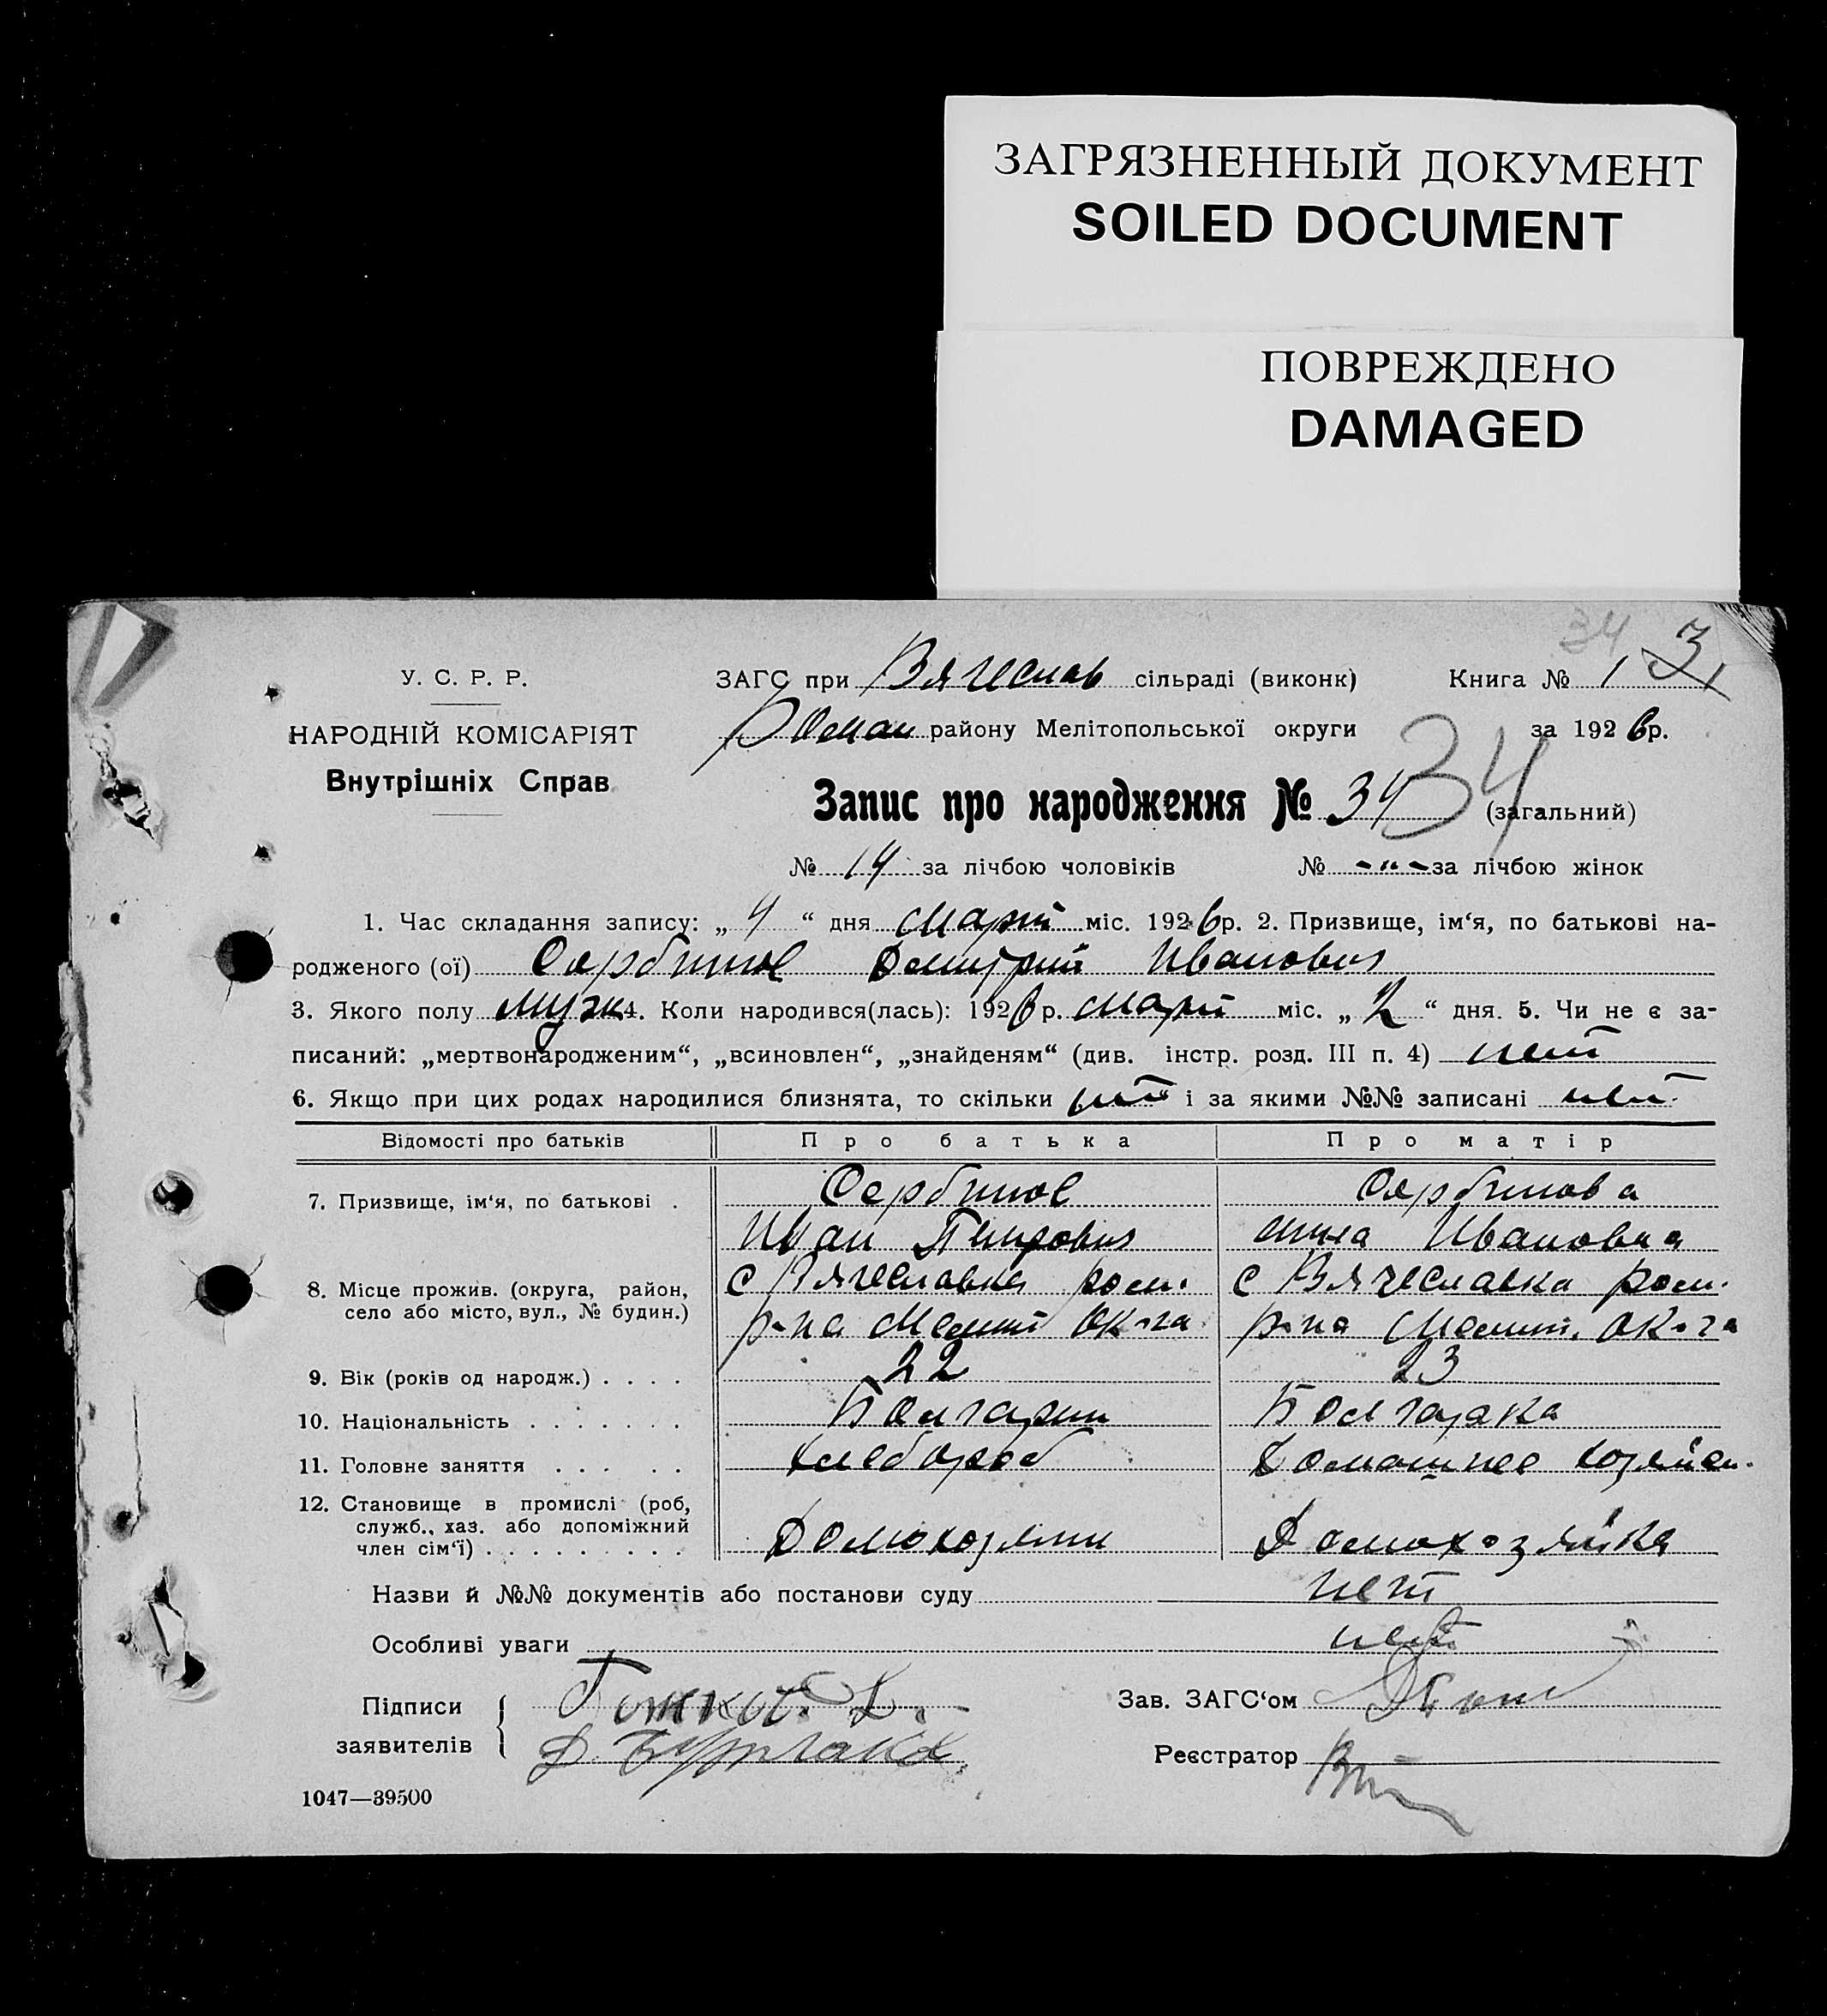 ЗАГРЯЗНЕННЫЙ ДОКУМЕНТ
SOILED DOCUMENT
ПОВРЕЖДЕНО
DAMAGED
34
У. С. Р. Р.
НАРОДНІЙ КОМІСАРІЯТ
Внутрішніх Справ
ЗАГС при Вячеслав сільраді (виконк) Книга № 1 3
Роман району Мелітопольської округи за 1926р.
Запис про народження № 34 34 (загальний)
№ 14 за лічбою чоловіків № -"- за лічбою жінок
1. Час складання запису: „ 4 “ дня Март міс. 1926р. 2. Призвище, ім‘я, по батькові на-
родженого (ої) Сербинов Дмитрий Иванович
3. Якого полу муж 4. Коли народився(лась): 1926р. март міс. „ 2 “ дня. 5. Чи не є за-
писаний: „мертвонародженим“, „всиновлен“, „знайденям“ (див. інстр. розд. III п. 4) нет
6. Якщо при цих родах народилися близнята, то скільки нет і за якими №№ записані нет
Відомості про батьків Про батька Про матір
7. Призвище, ім‘я, по батькові . Сербинов Сербинова
Иван Петрович Анна Ивановна
8. Місце прожив. (округа, район, с Вячеславка ром. с Вячеславка ром.
село або місто, вул., № будин.) р-на Мелит ок-га р-на Мелит. ок-га
9. Вік (років од народж.) . . . . 22 23
10. Національність . . . . . . . Болгарин Болгарка
11. Головне заняття . . . . . хлебороб Домашнее хозяйст.
12. Становище в промислі (роб,
служб., хаз. або допоміжний
член сім‘ї) . . . . . . . . . Домохозяин Домохозяйка
Назви й №№ документів або постанови суду нет
Особливі уваги нет
Підписи
заявителів Д. Бурлака
Зав. ЗАГС‘ом
Реєстратор
1047—39500